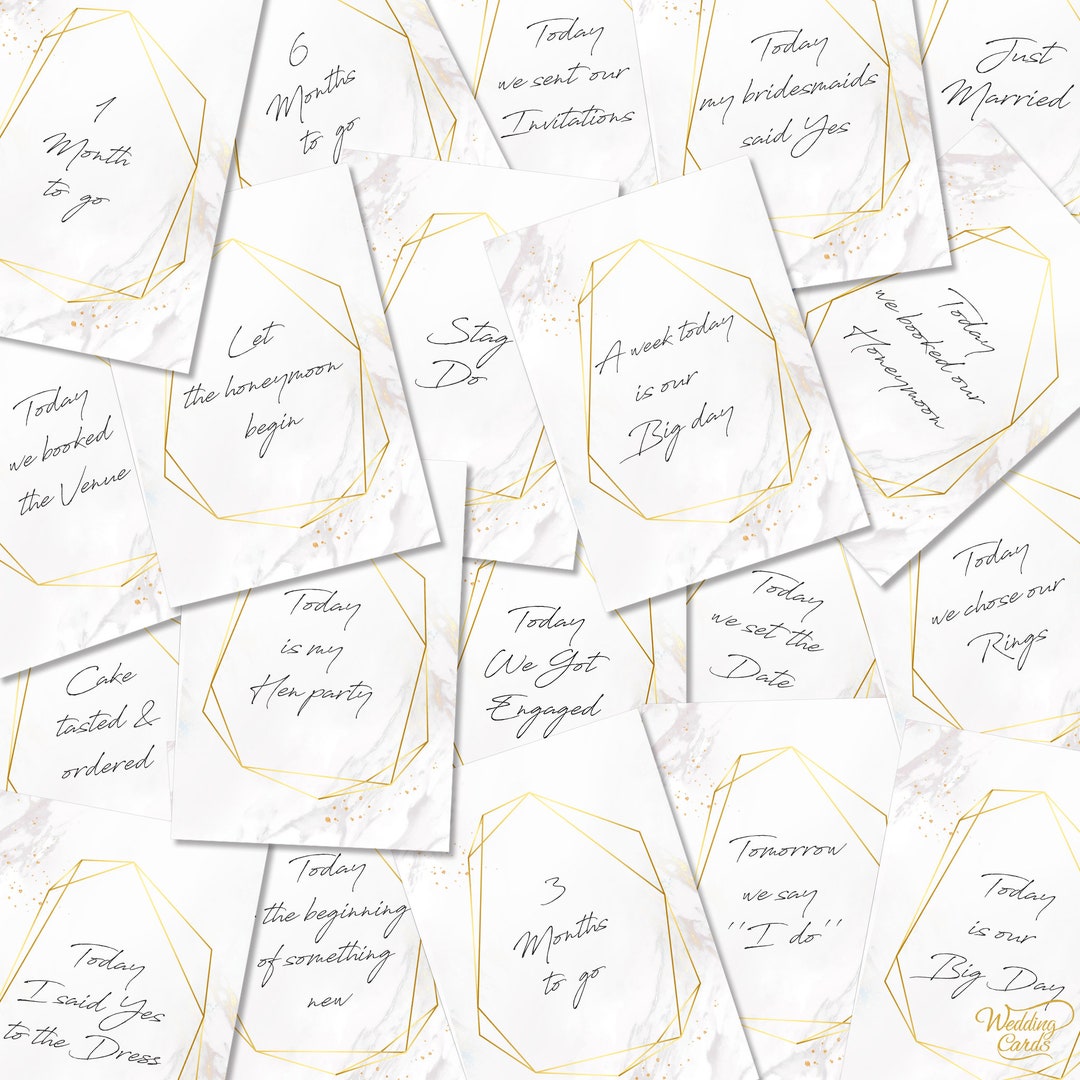 1
Month
to go
6
Months
to go
Today
we sent our
Invitations
Today
my bridesmaids
said Yes
Just
Married
Today
we booked
the Venue
Let
the honeymoon
begin
Stag
Do
A week today
is our
Big day
Today
we booked our
Honeymoon
Cake
tasted &
ordered
Today
is my
Hen party
Today
We Got
Engaged
Today
we set the
Date
Today
we chose our
Rings
Today
I said Yes
to the Dress
Today
the beginning
of something
new
3
Months
to go
Tomorrow
we say
''I do''
Today
is our
Big Day
Wedding
Cards